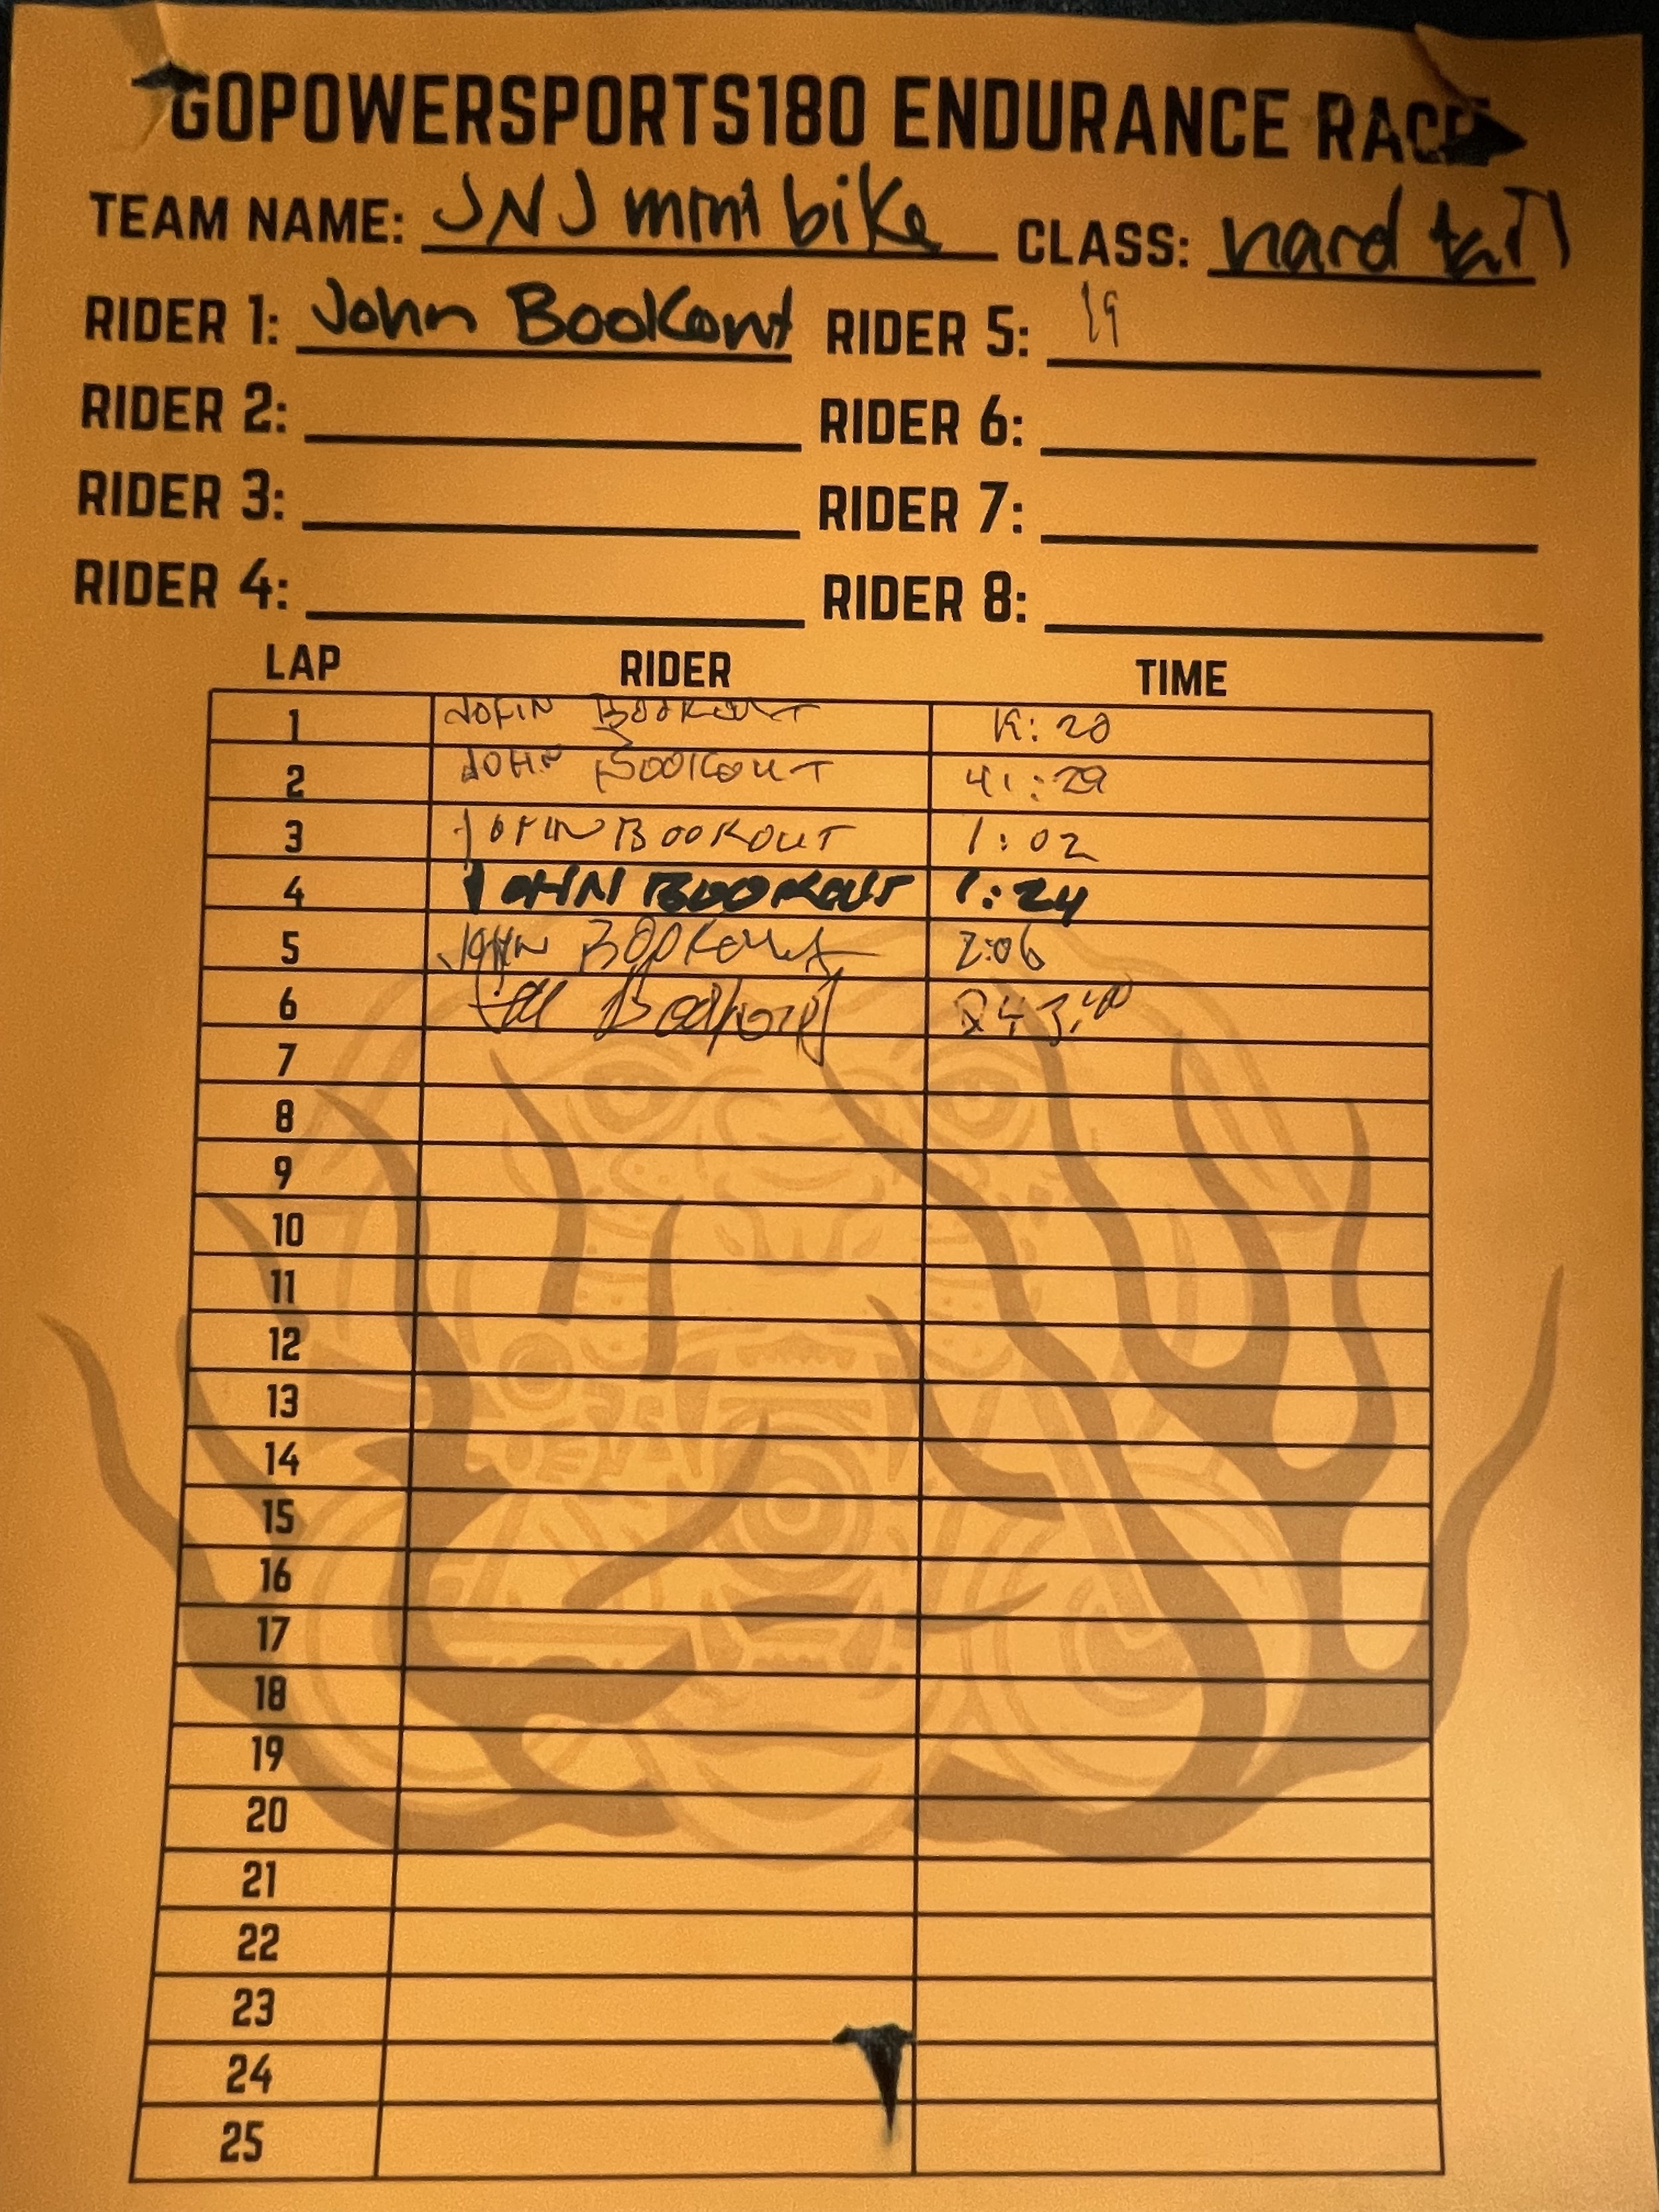 GOPOWERSPORTS180 ENDURANCE RACE
TEAM NAME: JNJ mini bike CLASS: hard tail
RIDER 1: John Bookout RIDER 5: 19
RIDER 2: RIDER 6:
RIDER 3: RIDER 7:
RIDER 4: RIDER 8:
LAP RIDER TIME
1 JOHN BOOKOUT :20
2 JOHN BOOKOUT 41:29
3 JOHN BOOKOUT 1:02
4 JOHN BOOKOUT 1:24
5 JOHN BOOKOUT 2:06
6
7
8
9
10
11
12
13
14
15
16
17
18
19
20
21
22
23
24
25